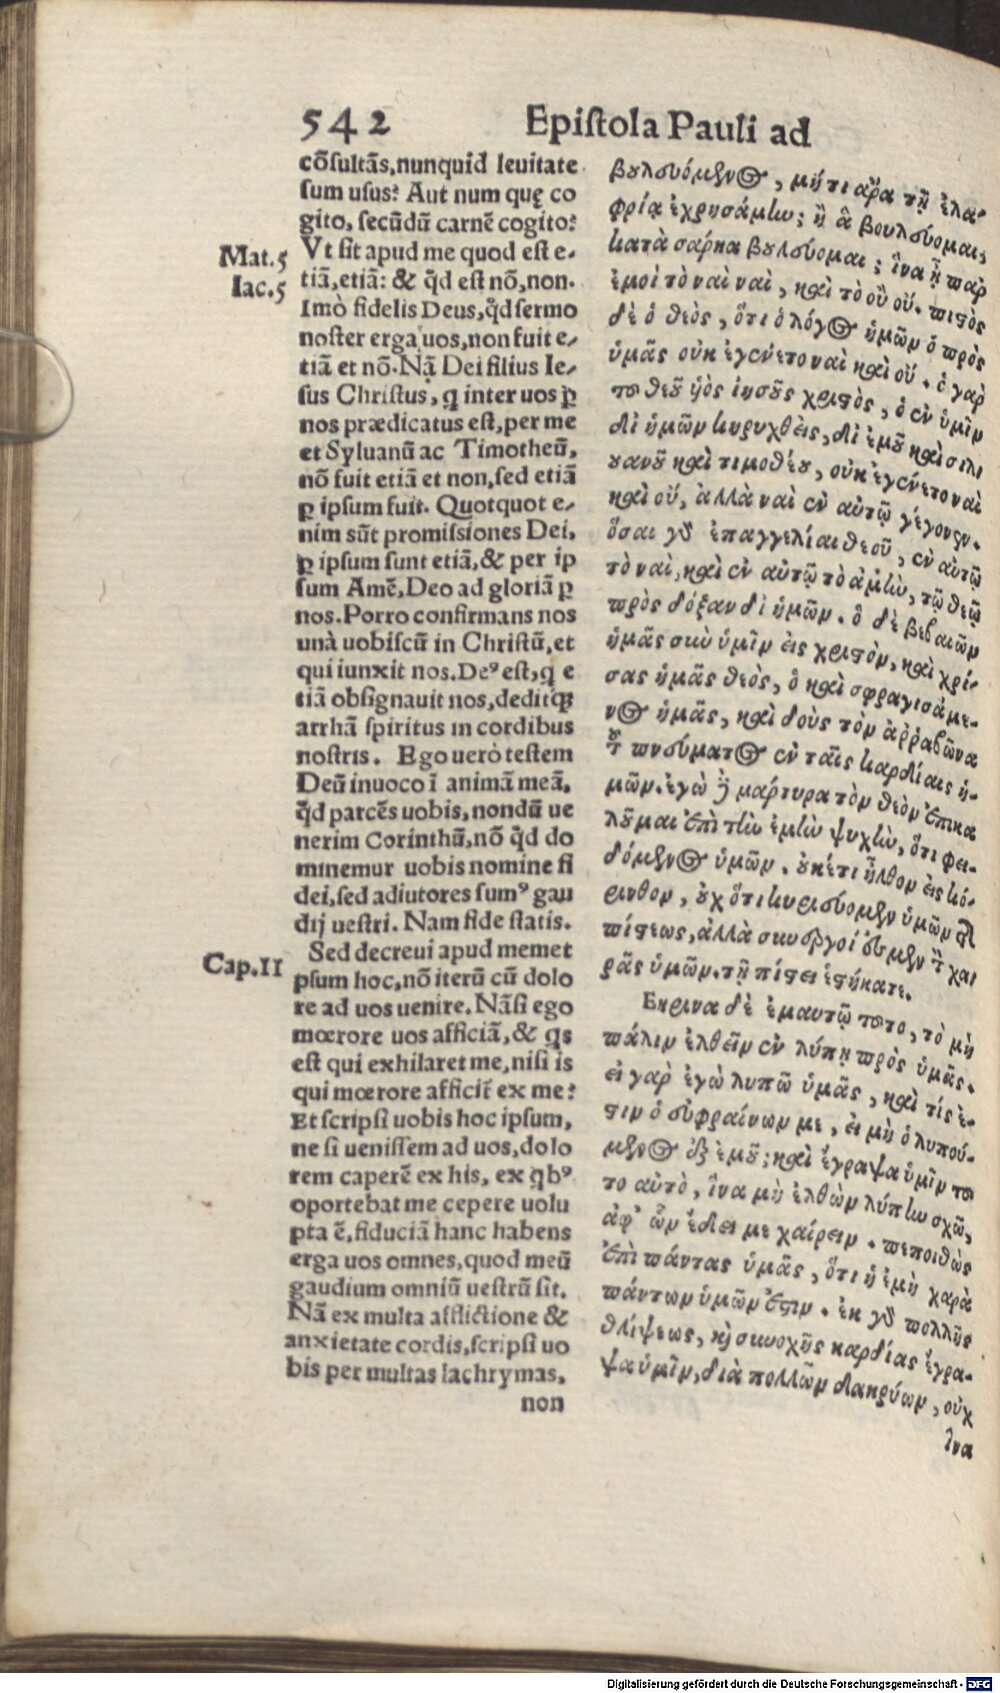 542
Epistola Pauli ad
cõsultãs, nunquid leuitate
sum usus? Aut num quę co
gito, secũdũ carnẽ cogito?
Vt sit apud me quod est e-
tiã, etiã: & q̃d est nõ, non.
Imò fidelis Deus, q̃d sermo
noster erga uos, non fuit e-
tiã et nõ. Nã Dei filius Ie-
sus Christus, q inter uos ꝑ
nos prædicatus est, per me
et Syluanũ ac Timotheũ,
nõ fuit etiã et non, sed etiã
ꝑ ipsum fuit. Quotquot e-
nim sũt promissiones Dei,
ꝑ ipsum sunt etiã, & per ip
sum Amẽ, Deo ad gloriã ꝑ
nos. Porro confirmans nos
unà uobiscũ in Christũ, et
qui iunxit nos. Deꝰ est, q e
tiã obsignauit nos, deditq́ꝫ
arrhã spiritus in cordibus
nostris. Ego uerò testem
Deũ inuoco ĩ animã meã,
q̃d parcẽs uobis, nondũ ue
nerim Corinthũ, nõ q̃d do
minemur uobis nomine fi
dei, sed adiutores sumꝰ gau
dij uestri. Nam fide statis.
Sed decreui apud memet
psum hoc, nõ iterũ cũ dolo
re ad uos uenire. Nã si ego
mœrore uos afficiã, & qs
est qui exhilaret me, nisi is
qui mœrore afficit̃ ex me?
Et scripsi uobis hoc ipsum,
ne si uenissem ad uos, dolo
rem caperẽ ex his, ex qbꝰ
oportebat me cepere uolu
ptatẽ, fiduciã hanc habens
erga uos omnes, quod meũ
gaudium omniũ uestrũ sit.
Nã ex multa afflictione &
anxietate cordis, scripsi uo
bis per multas lachrymas,
non
Mat.5
Iac.5
Cap.II
βουλευόμενος, μήτι ἄρα τῇ ἐλα-
φρίᾳ ἐχρησάμην; ἢ ἃ βουλεύομαι,
κατὰ σάρκα βουλεύομαι; ἵνα ᾖ παρ
ἐμοὶ τὸ ναὶ ναὶ, καὶ τὸ οὒ οὔ. πιστὸς
δὲ ὁ θεὸς, ὅτι ὁ λόγος ἡμῶν ὁ πρὸς
ὑμᾶς οὐκ ἐγένετο ναὶ καὶ οὔ. ὁ γὰρ
τοῦ θεοῦ ὑὸς ἰησοῦς χριστὸς, ὁ ἐν ὑμῖν
δι ἡμῶν κηρυχθεὶς, δι ἐμοῦ καὶ σιλι
ουανοῦ καὶ τιμοθέου, οὐκ ἐγένετο ναὶ
καὶ οὔ, ἀλλὰ ναὶ ἐν αὐτῷ γέγονεν.
ὅσαι γὰρ ἐπαγγελίαι θεοῦ, ἐν αὐτῷ
τὸ ναὶ, καὶ ἐν αὐτῷ τὸ ἀμὴν, τῷ θεῷ
πρὸς δόξαν δι ἡμῶν. ὁ δὲ βεβαιῶν
ἡμᾶς σὺν ὑμῖν εἰς χριστὸν, καὶ χρί-
σας ἡμᾶς θεὸς, ὁ καὶ σφραγισάμε-
νος ἡμᾶς, καὶ δοὺς τὸν ἀῤῥαβῶνα
τοῦ πνεύματος ἐν ταῖς καρδίαις ἡ-
μῶν. ἐγὼ δὲ μάρτυρα τὸν θεὸν ἐπικα
λοῦμαι ἐπὶ τὴν ἐμὴν ψυχὴν, ὅτι φει-
δόμενος ὑμῶν, οὐκέτι ἦλθον εἰς κό-
ρινθον, οὐχ ὅτι κυριεύομεν ὑμῶν τῆς
πίστεως, ἀλλὰ συνεργοί ἐσμεν τῆς χα
ρᾶς ὑμῶν. τῇ πίστει ἑστήκατε.
Εκρινα δὲ ἐμαυτῷ τοῦτο, τὸ μὴ
πάλιν ἐλθεῖν ἐν λύπῃ πρὸς ὑμᾶς.
εἰ γὰρ ἐγὼ λυπῶ ὑμᾶς, καὶ τίς ἐ-
στιν ὁ εὐφραίνων με, εἰ μὴ ὁ λυπού-
μενος ἐξ ἐμοῦ; καὶ ἔγραψα ὑμῖν τοῦ
το αὐτὸ, ἵνα μὴ ἐλθὼν λύπην σχῶ,
ἀφ' ὧν ἔδει με χαίρειν. πεποιθὼς
ἐπὶ πάντας ὑμᾶς, ὅτι ἡ ἐμὴ χαρὰ
πάντων ὑμῶν ἐστιν. ἐκ γὰρ πολλῆς
θλίψεως, καὶ συνοχῆς καρδίας ἔγρα-
ψα ὑμῖν, διὰ πολλῶν δακρύων, οὐχ
ἵνα
Digitalisierung gefördert durch die Deutsche Forschungsgemeinschaft - DFG